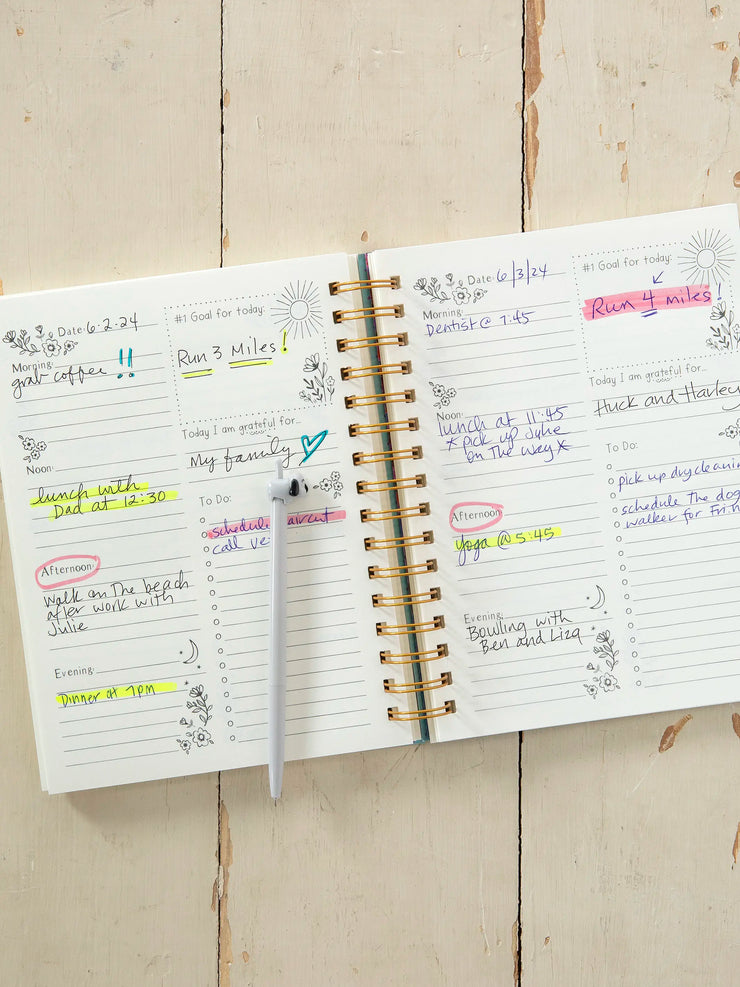 Date: 6.2.24
Morning:
grab coffee !!
Noon:
lunch with
Dad at 12:30
Afternoon:
walk on the beach
after work with
Julie
Evening:
Dinner at 7pm
#1 Goal for today:
Run 3 Miles!
Today I am grateful for...
My family
To Do:
schedule haircut
call
Date: 6/3/24
Morning:
Dentist @ 7:45
Noon:
lunch at 11:45
* pick up Julie
on the way *
Afternoon:
Yoga @ 5:45
Evening:
Bowling with
Ben and Liza
#1 Goal for today:
Run 4 miles!
Today I am grateful for...
Huck and Harley
To Do:
pick up dry cleaning
schedule the dog
walker for